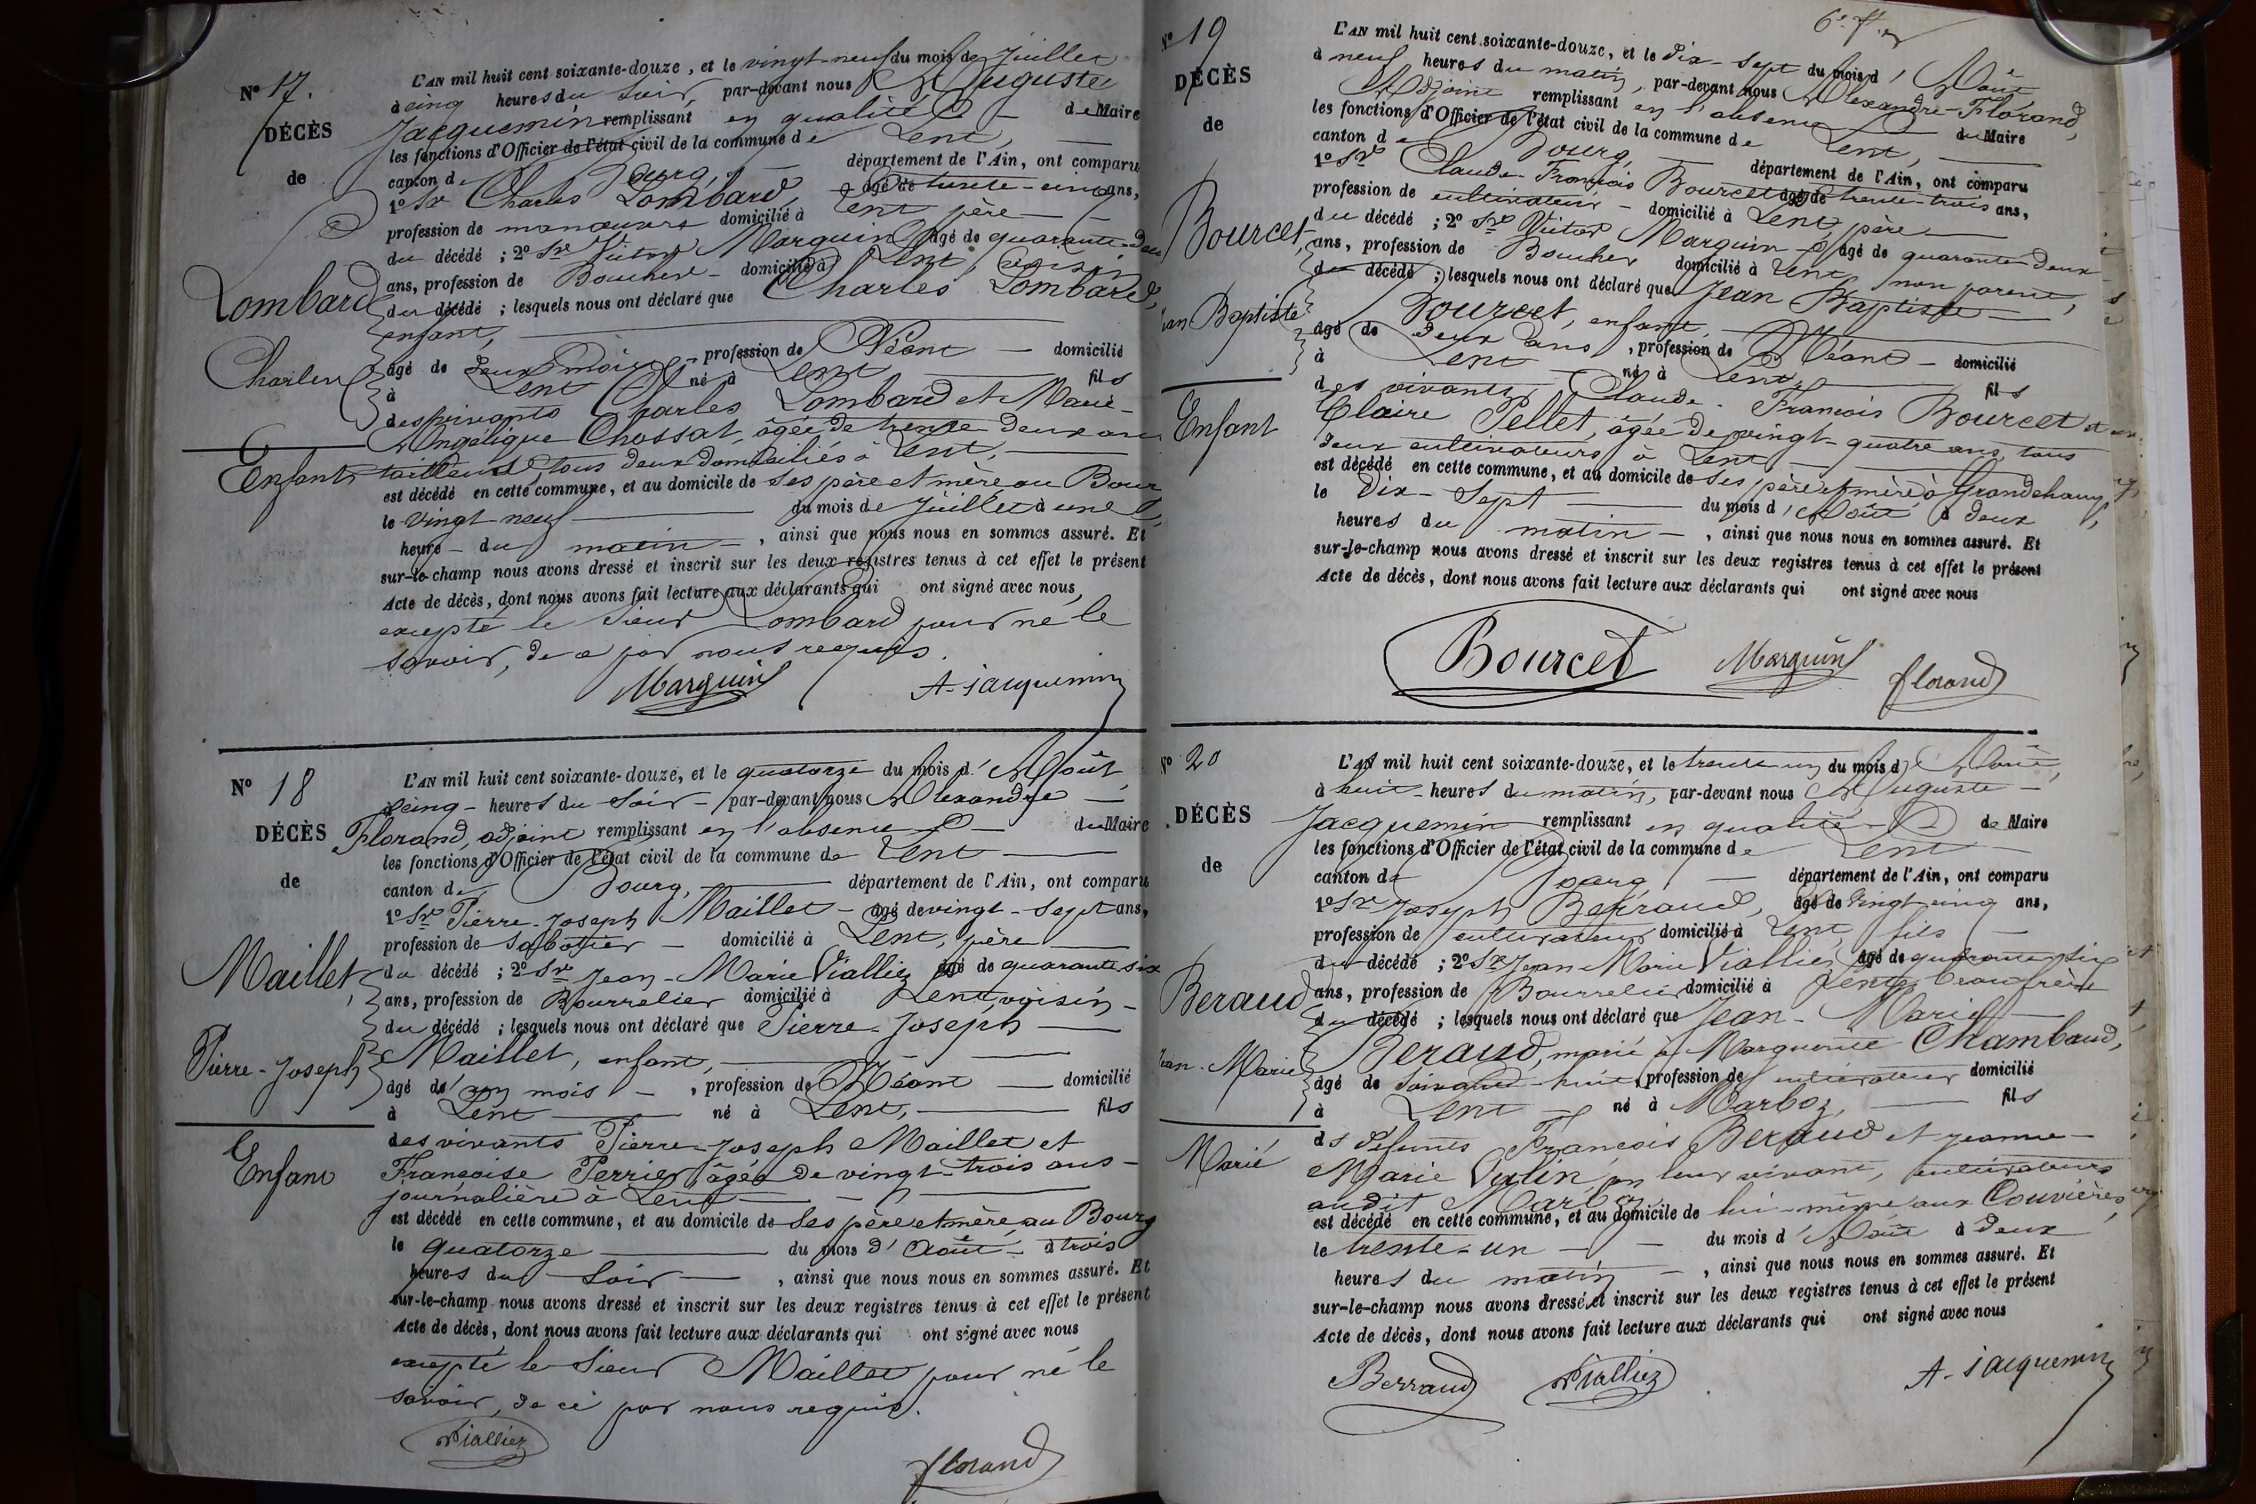 N° 17.
DÉCÈS
de
Lombard
Charles
Enfant
L'AN mil huit cent soixante-douze, et le vingt-neuf du mois de Juillet
à cinq heures du soir, par-devant nous Auguste
Jacquemin remplissant en qualité de Maire
les fonctions d'Officier de l'état civil de la commune de Lent,
canton de Bourg, département de l'Ain, ont comparu
1° Sr Charles Lombard, âgé de trente-cinq ans,
profession de manœuvre domicilié à Lent père
du décédé ; 2° Sr Victor Marguin âgé de quarante-deux
ans, profession de Boucher - domicilié à Lent, voisin
du décédé ; lesquels nous ont déclaré que Charles Lombard,
enfant,
âgé de deux mois, profession de Néant - domicilié
à Lent né à Lent fils
des vivants Charles Lombard et Marie-
Angélique Chossat, âgée de trente deux ans
tailleuse, tous deux domiciliés à Lent,
est décédé en cette commune, et au domicile de ses père et mère au Bourg
le vingt neuf du mois de Juillet à une
heure - du matin -, ainsi que nous nous en sommes assuré. Et
sur-le-champ nous avons dressé et inscrit sur les deux registres tenus à cet effet le présent
Acte de décès, dont nous avons fait lecture aux déclarants qui ont signé avec nous,
excepté le sieur Lombard pour ne le
savoir, de ce par nous requis.
Marguin A. Jacquemin
N° 18
DÉCÈS
de
Maillet,
Pierre-Joseph
Enfant
L'AN mil huit cent soixante-douze, et le quatorze du mois d'Août,
à cinq - heures du soir - par-devant nous Alexandre
Florand, adjoint remplissant en l'absence du Maire
les fonctions d'Officier de l'état civil de la commune de Lent
canton de Bourg, département de l'Ain, ont comparu
1° Sr Pierre-Joseph Maillet - âgé de vingt-sept ans,
profession de sabotier - domicilié à Lent, père
du décédé ; 2° Sr Jean-Marie Vialliez âgé de quarante six
ans, profession de Bourrelier domicilié à Lent, voisin -
du décédé ; lesquels nous ont déclaré que Pierre-Joseph
Maillet, enfant,
âgé de un mois -, profession de Néant domicilié
à Lent né à Lent, fils
des vivants Pierre-Joseph Maillet et
Françoise Perrier, âgée de vingt-trois ans -
journalière à Lent
est décédé en cette commune, et au domicile de ses père et mère, au Bourg
le quatorze du mois d'Août - à trois
heures du soir, ainsi que nous nous en sommes assuré. Et
sur-le-champ nous avons dressé et inscrit sur les deux registres tenus à cet effet le présent
Acte de décès, dont nous avons fait lecture aux déclarants qui ont signé avec nous
excepté le sieur Maillet pour ne le
savoir, de ce par nous requis.
Vialliez
florand
N° 19
DÉCÈS
de
Bourcet
Jean Baptiste
Enfant
L'AN mil huit cent soixante-douze, et le dix-sept du mois d'Août
à neuf heures du matin, par-devant nous Alexandre-Florand,
Adjoint remplissant en l'absence du Maire
les fonctions d'Officier de l'état civil de la commune de Lent,
canton de Bourg, département de l'Ain, ont comparu
1° Sr Claude-François Bourcet âgé de trente-trois ans,
profession de cultivateur - domicilié à Lent, père
du décédé ; 2° Sr Victor Marguin - âgé de quarante-deux
ans, profession de Boucher domicilié à Lent, non parent,
du décédé ; lesquels nous ont déclaré que Jean Baptiste
Bourcet, enfant,
âgé de deux ans, profession de Néant - domicilié
à Lent né à Lent, fils
des vivants Claude-François Bourcet et
Claire Pellet, âgée de vingt-quatre ans, tous
deux cultivateurs à Lent
est décédé en cette commune, et au domicile de ses père et mère à Grandchamp,
le dix-sept du mois d'Août à deux
heures du matin -, ainsi que nous nous en sommes assuré. Et
sur-le-champ nous avons dressé et inscrit sur les deux registres tenus à cet effet le présent
Acte de décès, dont nous avons fait lecture aux déclarants qui ont signé avec nous
Bourcet Marguin florand
N° 20
DÉCÈS
de
Beraud
Jean-Marie
Marié
L'AN mil huit cent soixante-douze, et le trente un du mois d'Août,
à huit - heures du matin, par-devant nous Auguste -
Jacquemin remplissant en qualité de Maire
les fonctions d'Officier de l'état civil de la commune de Lent
canton de Bourg - département de l'Ain, ont comparu
1° Sr Joseph Beraud, âgé de vingt cinq ans,
profession de cultivateur domicilié à Lent, fils
du décédé ; 2° Sr Jean Marie Vialliez, âgé de quarante six
ans, profession de Bourrelier domicilié à Lent, beau frère
du décédé ; lesquels nous ont déclaré que Jean-Marie
Beraud, marié à Marguerite Chambaud,
âgé de soixante-huit, profession de cultivateur domicilié
à Lent né à Marboz, fils
ds défunts François Beraud et Jeanne-
Marie Vulin en leur vivant, cultivateurs
audit Marboz
est décédé en cette commune, et au domicile de lui-même aux Couvières,
le trente-un du mois d'Août à deux
heures du matin -, ainsi que nous nous en sommes assuré. Et
sur-le-champ nous avons dressé et inscrit sur les deux registres tenus à cet effet le présent
Acte de décès, dont nous avons fait lecture aux déclarants qui ont signé avec nous
Berraud Vialliez A. Jacquemin